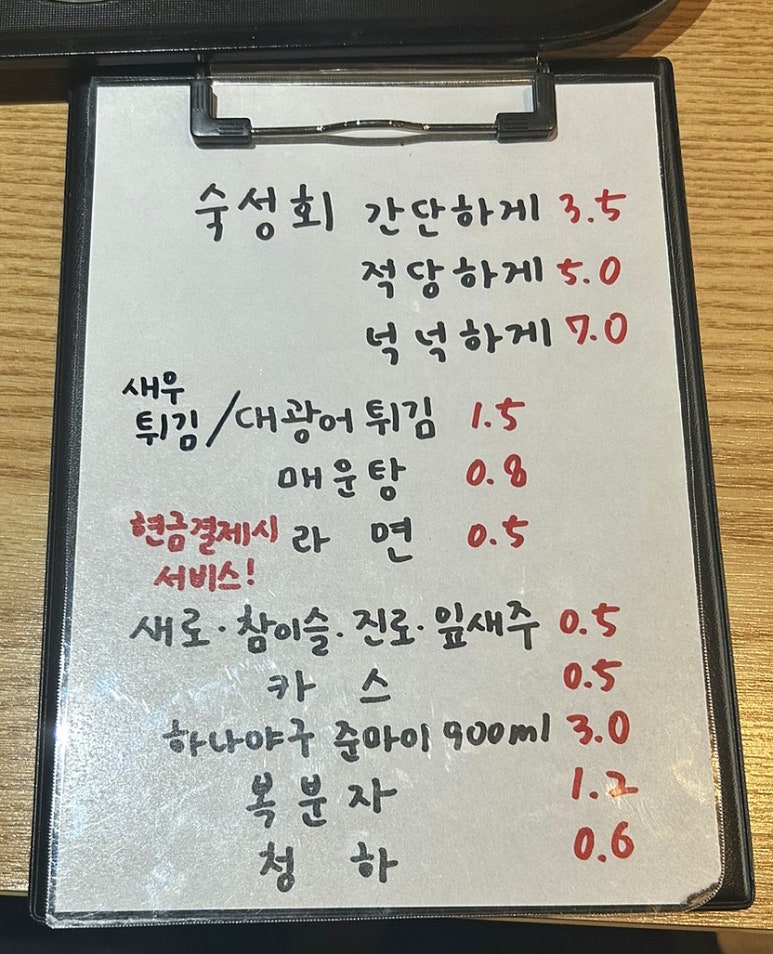 숙성회 간단하게 3.5
적당하게 5.0
넉넉하게 7.0
새우
튀김 / 대광어 튀김 1.5
매운탕 0.8
현금결제시 라 면 0.5
서비스!
새로·참이슬·진로·잎새주 0.5
카 스 0.5
하나야구 준마이 900ml 3.0
복분자 1.2
청 하 0.6